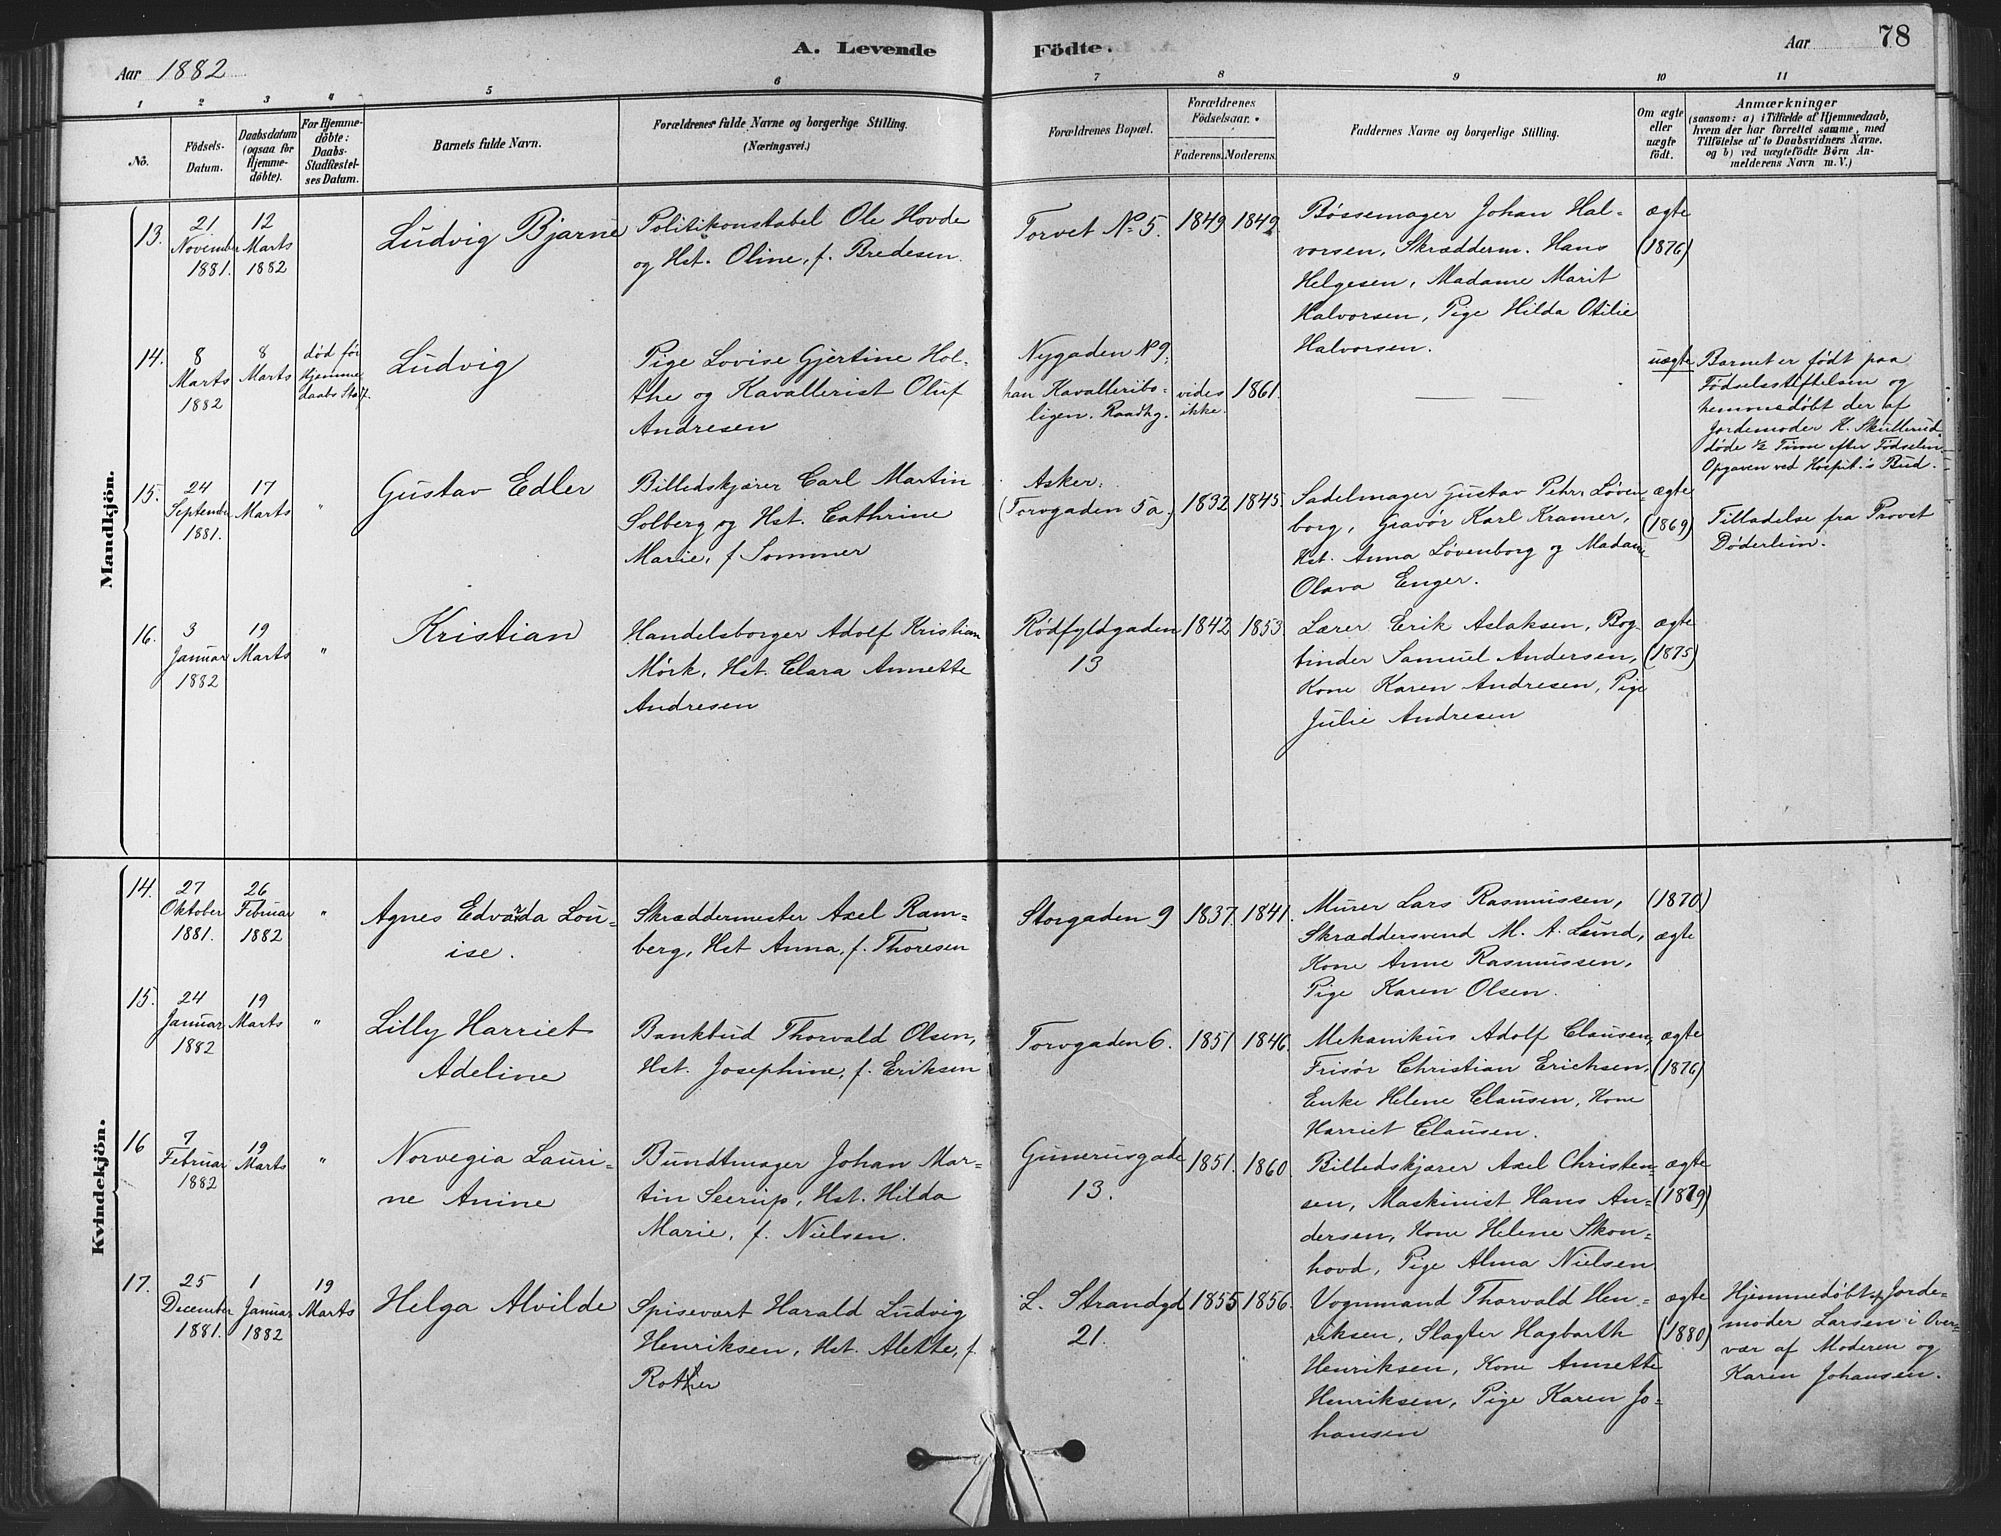 A. Levende Födte.
Aar 1882
Aar 78
1 2 3 4 5 6 7 8 9 10 11
No.
Födsels-
Datum.
Daabsdatum
(ogsaa for
Hjemme-
döbte).
For Hjemme-
döbte:
Daabs-
Stadfæstel-
ses Datum.
Barnets fulde Navn.
Forældrenes fulde Navne og borgerlige Stilling.
(Næringsvei.)
Forældrenes Bopæl.
Forældrenes
Födselsaar.
Faderens. Moderens.
Faddernes Navne og borgerlige Stilling.
Om ægte
eller
uægte
födt.
Anmærkninger
(saasom: a) i Tilfælde af Hjemmedaab,
hvem der har forrettet samme, med
Tilföielse af to Daabsvidners Navne,
og b) ved uægtefödte Börn An-
melderens Navn m.V.)
Mandkjön.
13.
21
November
1881.
12
Marts
1882
Ludvig Bjarne
Politikonstabel Ole Hovde
og Hst. Oline, f. Bredesen.
Torvet No 5.
1849 1849
Bøssemager Johan Hal-
vorsen, Skrædderm. Hans
Helgesen, Madame Marit
Halvorsen, Pige Hilda Otilie
Halvorsen.
ægte
(1876)
14.
8
Marts
1882
8
Marts
død før
Hjemme
daabs Stadf.
Ludvig
Pige Lovise Gjertine Hol-
the og Kavallerist Oluf
Andresen
Nygaden No 9;
han Kavalleribo-
ligen. Raadhg.
vides
ikke.
1861.
uægte
Barnet er født paa
Fødselsstiftelsen og
hemmedøbt der af
Jordemoder K. Skullerud
døde ½ Time efter Fødselen
Opgaven ved Hospit.'s Bud.
15.
24
September
1881.
17
Marts
"
Gustav Edler
Billedskjærer Carl Martin
Solberg og Hst. Cathrine
Marie, f. Sommer
Asker.
(Torvgaden 5a.)
1832 1845.
Sadelmager Gustav Petr. Løven-
borg, Gravør Karl Kramer,
Hst. Anna Løvenborg og Madam
Olava Enger.
ægte
(1869)
Tilladelse fra Provst
Døderlein.
16.
3
Januar
1882
19
Marts
"
Kristian
Handelsborger Adolf Kristian
Mørk, Hst. Clara Annette
Andresen
Rødfyldgaden
13
1842 1853.
Lærer Erik Aslaksen, Bog-
binder Samuel Andersen,
Kone Karen Andresen, Pige
Julie Andresen
ægte
(1875)
Kvindekjön.
14.
27
Oktober
1881.
26
Februar
1882
"
Agnes Edvarda Lou-
ise.
Skræddermester Axel Ram-
berg, Hst Anna, f. Thoresen
Storgaden 9
1837. 1841.
Murer Lars Rasmussen,
Skræddersvend M. A. Lund,
Kone Anne Rasmussen,
Pige Karen Olsen.
(1870)
ægte
15.
24
Januar
1882
19
Marts
"
Lilly Harriet
Adeline
Bankbud Thorvald Olsen,
Hst. Josephine, f. Eriksen
Torvgaden 6.
1851 1846.
Mekanikus Adolf Clausen,
Frisør Christian Erichsen,
Enke Helene Clausen, Kone
Harriet Clausen.
ægte
(1876)
16
7
Februar
1882
19
Marts
"
Norvegia Lauri-
ne Anine
Bundtmager Johan Mar-
tin Seerup, Hst. Hilda
Marie, f. Nielsen.
Gunerusgade
13.
1851. 1860
Billedskjærer Axel Christen-
sen, Maskinist Hans An-
dersen, Kone Helene Skon-
hovd, Pige Alma Nielsen
ægte
(1879)
17.
25
December
1881.
1
Januar
1882
19
Marts
Helga Alvilde
Spisevært Harald Ludvig
Henriksen, Hst. Alette, f.
Rother
L. Strandgd
21.
1855 1856.
Vognmand Thorvald Hen-
riksen, Slagter Hagbarth
Henriksen, Kone Annette
Henriksen, Pige Karen Jo-
hansen
ægte
(1880)
Hjemmedøbt af Jorde-
moder Larsen i Over-
vær af Moderen og
Karen Johansen.